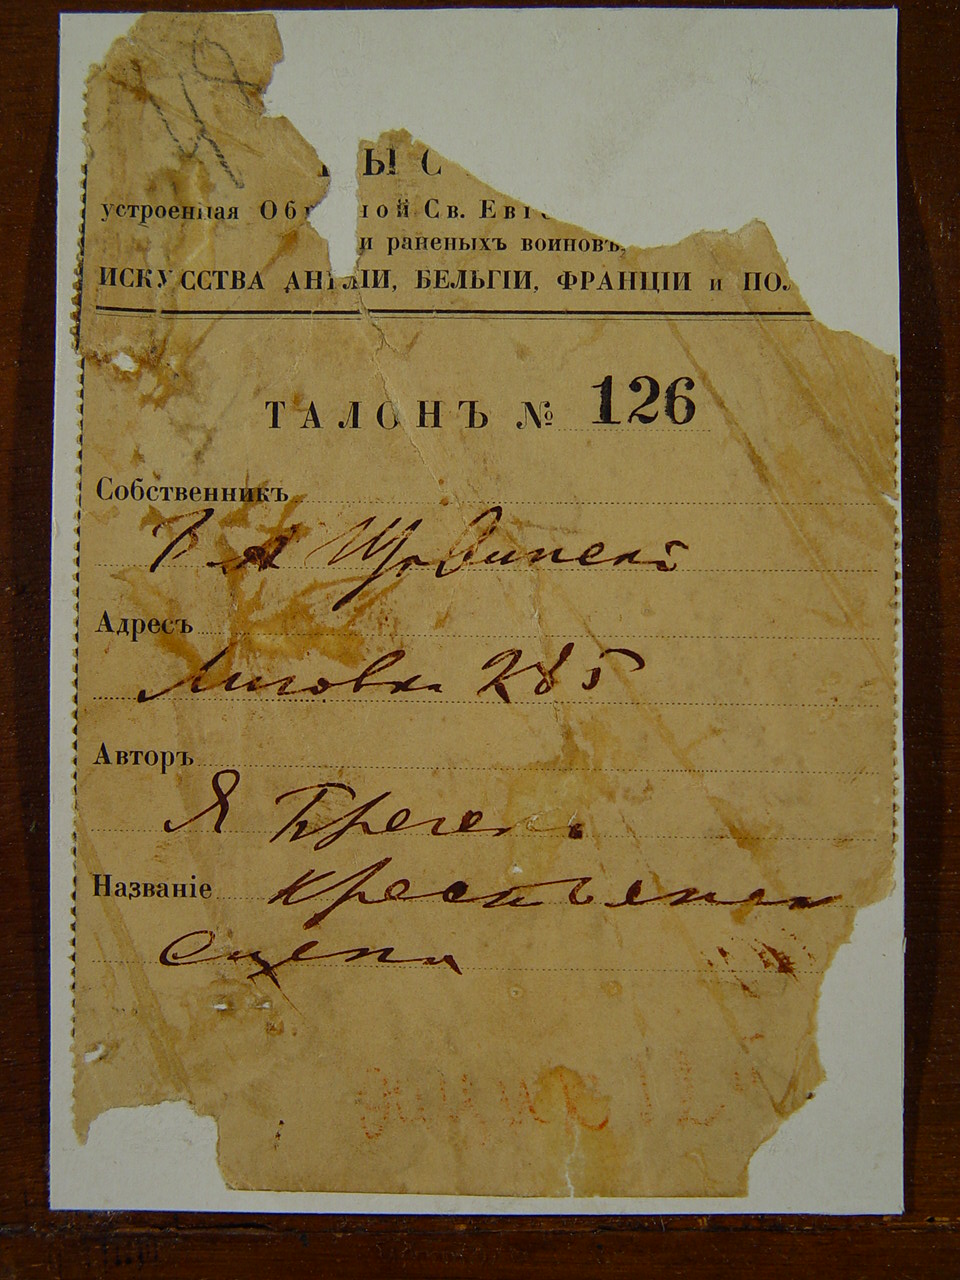 48
ВЫС
устроенная Об ной Св. Евг
и раненыхъ воиновъ,
ИСКУССТВА АНГЛІИ, БЕЛЬГІИ, ФРАНЦІИ и ПО
ТАЛОНЪ № 126
Собственникъ
Адресъ
Лиговка 285
Авторъ
Я
Названіе Крестьянская
сцена